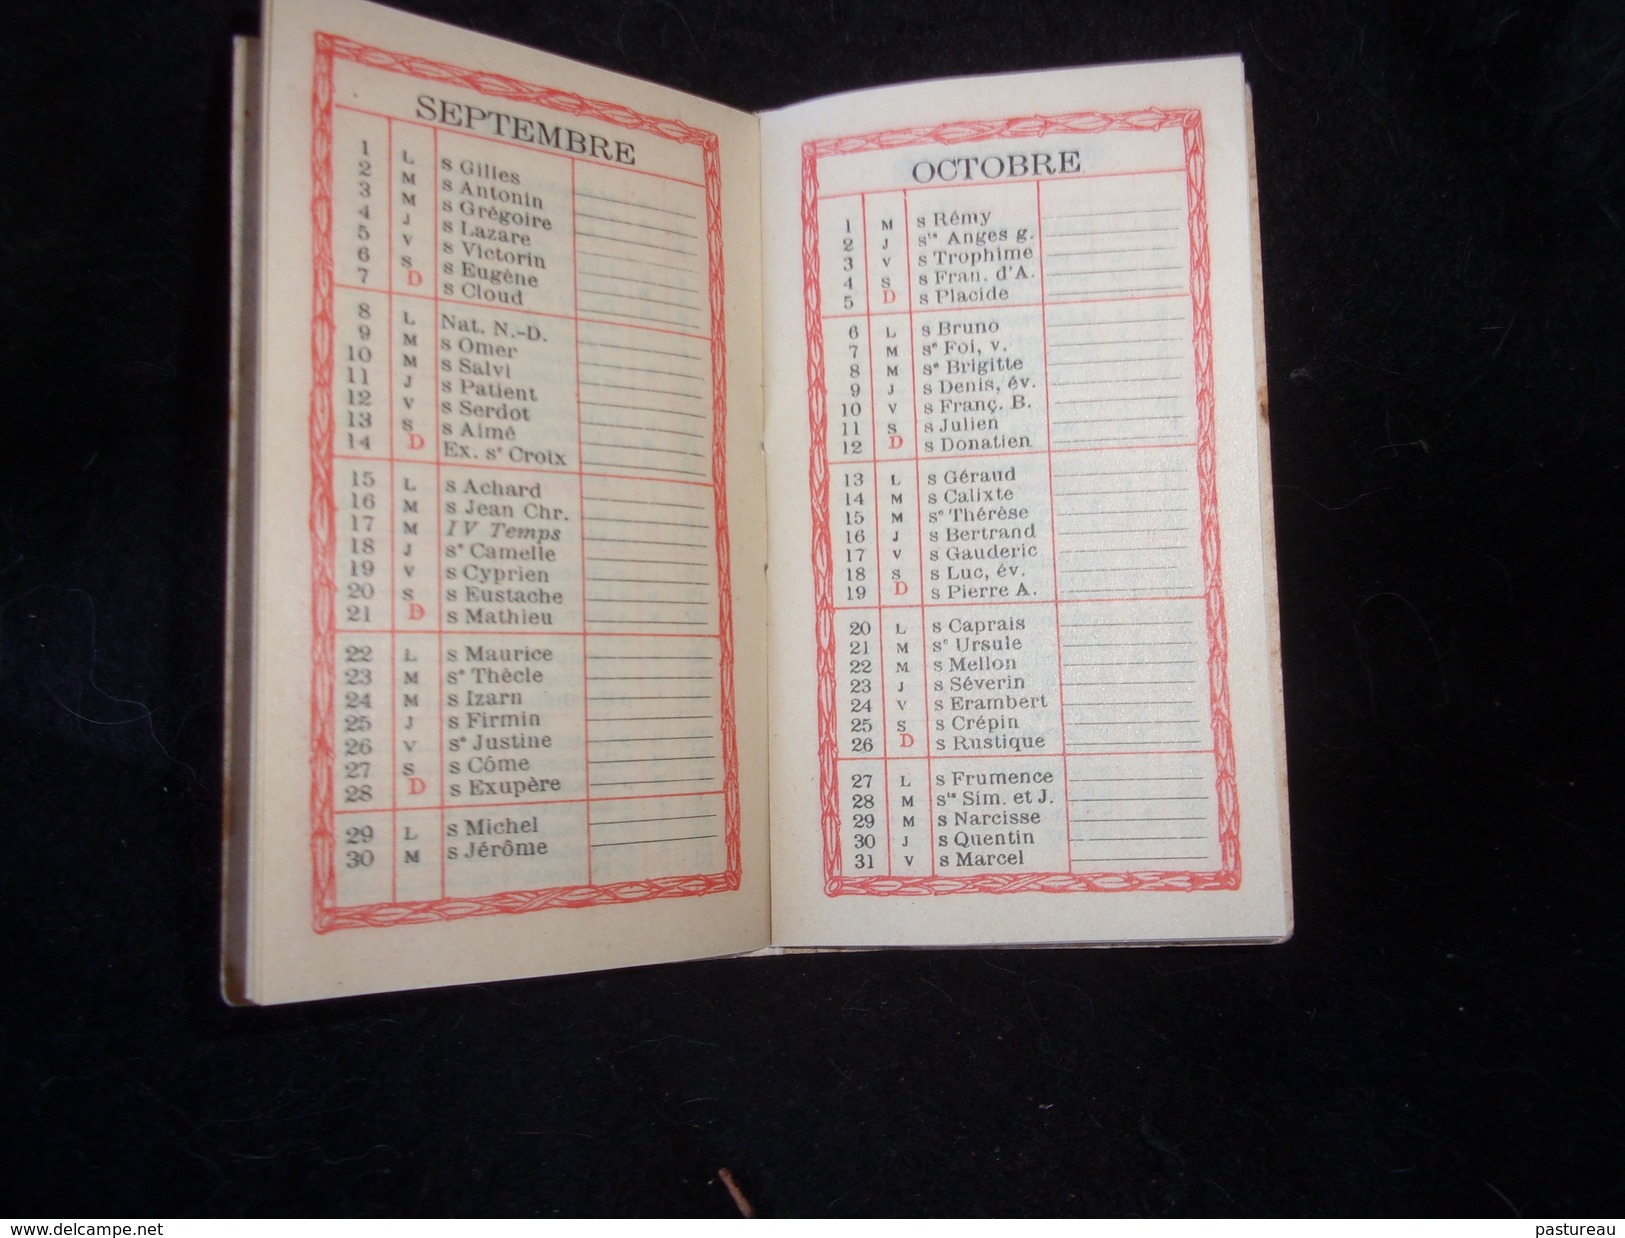 SEPTEMBRE
1 L s Gilles
2 M s Antonin
3 M s Grégoire
4 J s Lazare
5 V s Victorin
6 S s Eugène
7 D s Cloud
8 L Nat. N.-D.
9 M s Omer
10 M s Salvi
11 J s Patient
12 V s Serdot
13 S s Aimé
14 D Ex. se Croix
15 L s Achard
16 M s Jean Chr.
17 M IV Temps
18 J se Camelle
19 V s Cyprien
20 S s Eustache
21 D s Mathieu
22 L s Maurice
23 M se Thècle
24 M s Izarn
25 J s Firmin
26 V se Justine
27 S s Côme
28 D s Exupère
29 L s Michel
30 M s Jérôme
OCTOBRE
1 M s Rémy
2 J sts Anges g.
3 V s Trophime
4 S s Fran. d'A.
5 D s Placide
6 L s Bruno
7 M se Foi, v.
8 M se Brigitte
9 J s Denis, év.
10 V s Franç. B.
11 S s Julien
12 D s Donatien
13 L s Géraud
14 M s Calixte
15 M se Thérèse
16 J s Bertrand
17 V s Gauderic
18 S s Luc, év.
19 D s Pierre A.
20 L s Caprais
21 M se Ursule
22 M s Mellon
23 J s Séverin
24 V s Erambert
25 S s Crépin
26 D s Rustique
27 L s Frumence
28 M sts Sim. et J.
29 M s Narcisse
30 J s Quentin
31 V s Marcel
www.delcampe.net
pastureau